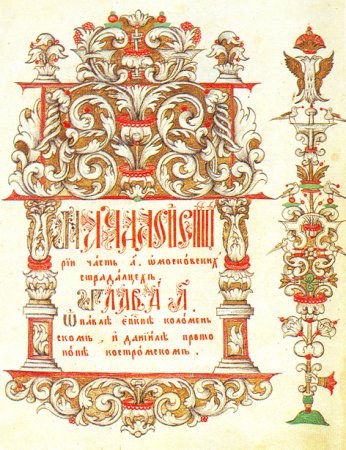 рїи часть а҃, ѡ московскихъ
страдалцехъ.
Глава а҃
Ѡ павлѣ еп҃кпѣ коломен
скомъ, и данїилѣ прото
попѣ костромскомъ.